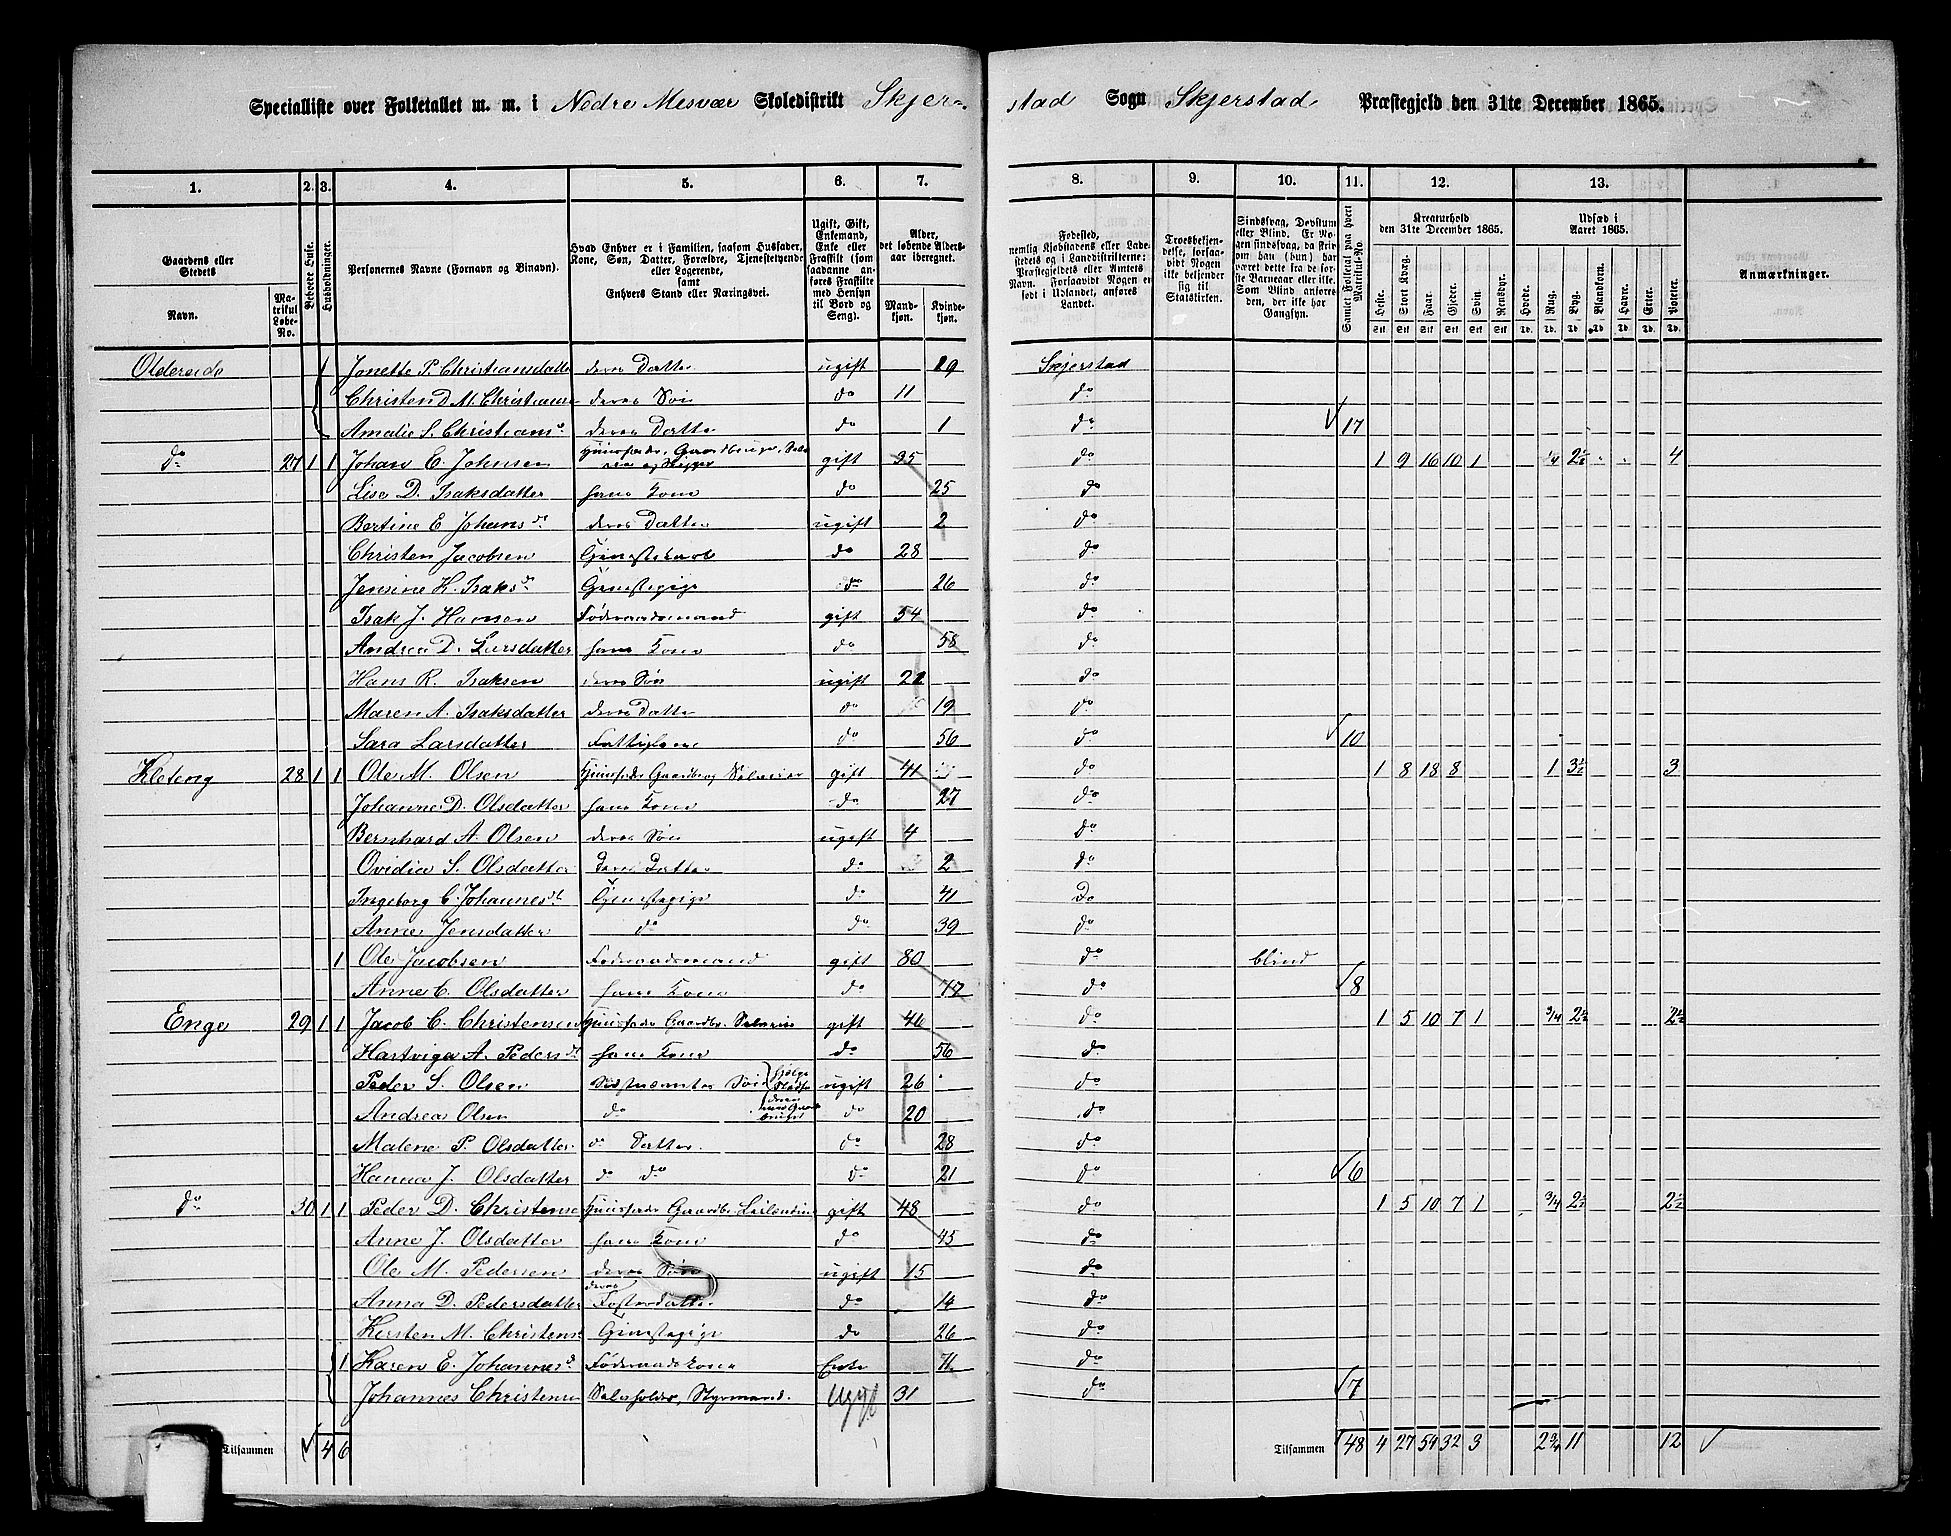 Specialliste over Folketallet m. m. i Nedre Mesvær Skoledistrikt Skjerstad Sogn Skjerstad Præstegjeld den 31te December 1865.
1. 2. 3. 4. 5. 6. 7. 8. 9. 10. 11. 12. 13.
Gaardens eller Stedets Navn. Matrikul Løbe-No. Beboede Huse. Husholdninger. Personernes Navne (Fornavn og Binavn). Hvad Enhver er i Familien, saasom Husfader, Kone, Søn, Datter, Forældre, Tjenestetyende eller Logerende, samt Enhvers Stand eller Næringsvei. Ugift, Gift, Enkemand, Enke eller Fraskilt (som saadanne anføres Fraskilte med Hensyn til Bord og Seng). Alder, det løbende Aldersaar iberegnet. Mandkjøn. Kvindekjøn.
Fødested, nemlig Kjøbstadens eller Ladestedets og i Landdistrikterne: Præstegjeldets eller Amtets Navn. Forsaavidt Nogen er født i Udlandet, anføres Landet. Troesbekjendelse, forsaavidt Nogen ikke bekjender sig til Statskirken. Sindssvag, Døvstum eller Blind. Er Nogen sindssvag, da skrives om han (hun) har været dette fra de første Barneaar eller ikke. Som Blind anføres den, der ikke har Gangsyn. Samlet Folketal paa hvert Matrikul-No. Kreaturhold den 31te December 1865. Heste. Stort Kvæg. Faar. Gjeder. Svin. Rensdyr. Udsæd i Aaret 1865. Hvede. Rug. Byg. Blandkorn. Havre. Erter. Poteter. Anmærkninger.
Oldereide 1 Jonette P. Christiansdatter deres Datter ugift 19 Skjerstad
Christen D. M. Christianse deres Søn do 11 do
Amalie S. Christiansd deres Datter do 1 do 17
do 27 1 1 Johan E. Johnsen Huusfader, Gaardbruger, gift 35 do 1 9 16 10 1 1/4 2½ 4
Lise D. Isaksdatter hans Kone do 25 do
Bertine E. Johansd deres Datter ugift 2 do
Christen Jacobsen Tjenestekarl do 28 do
Jensine H. Isaksd Tjenestepige do 26 do
Isak J. Hansen Føderaadsmand gift 54 do
Andrea D. Larsdatter hans Kone do 58 do
Hans R. Isaksen deres Søn ugift 21 do
Maren A. Isaksdatter deres Datter do 19 do
Sara Larsdatter do 56 do 10
Kleteng 28 1 1 Ole M. Olsen Huusfader Gaardb. og Selveier gift 41 do 1 8 18 8 1 3½ 3
Johanne D. Olsdatter hans Kone do 27 do
Bernhard A. Olsen deres Søn ugift 4 do
Ovidia S. Olsdatter deres Datter do 2 do
Ingeborg C. Johannesd Tjenestepige do 41 Do
Anne Jensdatter do do 39 do
1 Ole Jacobsen Føderaadsmand gift 80 do blind
Anne C. Olsdatter hans Kone do do 8
Enge 29 1 1 Jacob C. Christensen Huusfader Gaardbr. Selveier gift 46 do 1 5 10 7 1 3/4 2½ 2½
Hartviga A. Pedersd hans Kone do 56 do
Peder S. Olsen Søn ugift 26 do
Andrea Olsen do do 20 do
Malene P. Olsdatter do Datter do 28 do
Hanna J. Olsdatter do do do 21 do 6
do 30 1 1 Peder D. Christense Huusfader Gaardbr. Leilænding gift 48 do 1 5 10 7 1 3/4 2½ 2½
Anne J. Olsdatter hans Kone do 45 do
Ole M. Pedersen deres Søn ugift 15 do
Anna D. Pedersdatter deres Fosterdatter do 14 do
Kersten M. Christens Tjenestepige do 26 do
1 Karen E. Johannesd Føderaadskone Enke 71 do
Johannes Christense Selvholder, Styrmand. ugift 31 do 7
Tilsammen 4 6 Tilsammen 48 4 27 54 32 3 2¾ 11 12